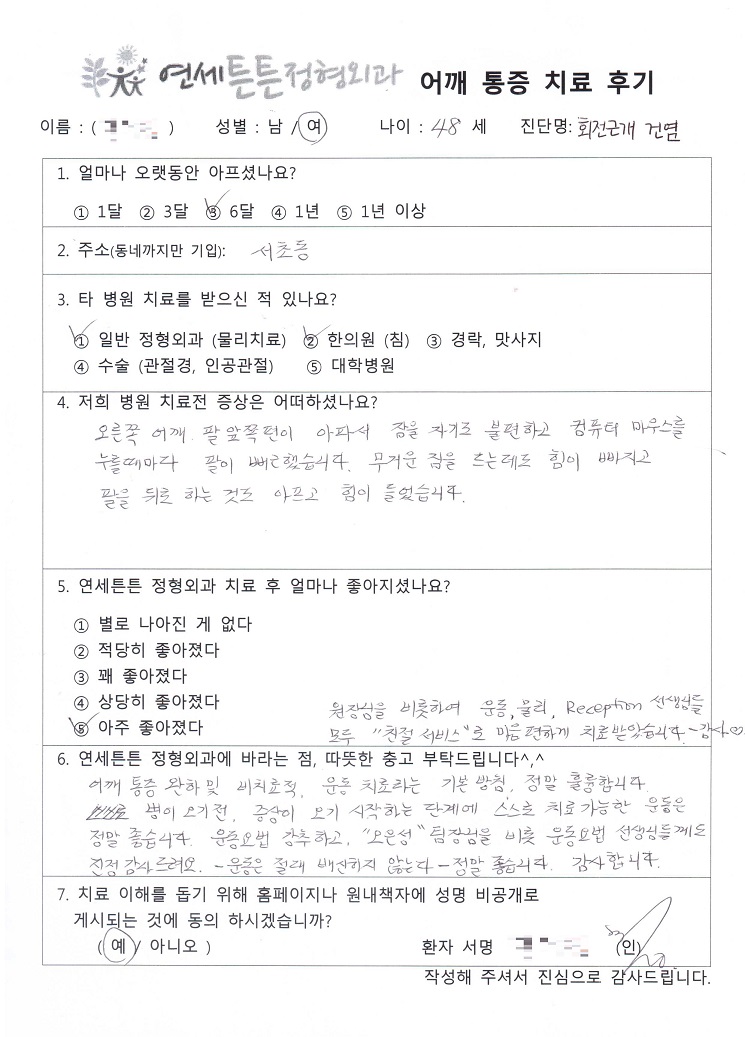 연세튼튼정형외과 어깨 통증 치료 후기
이름 : ( ) 성별 : 남 / 여 나이 : 48 세 진단명: 회전근개 건염
1. 얼마나 오랫동안 아프셨나요?
① 1달 ② 3달 ③ 6달 ④ 1년 ⑤ 1년 이상
2. 주소(동네까지만 기입): 서초동
3. 타 병원 치료를 받으신 적 있나요?
① 일반 정형외과 (물리치료) ② 한의원 (침) ③ 경락, 맛사지
④ 수술 (관절경, 인공관절) ⑤ 대학병원
4. 저희 병원 치료전 증상은 어떠하셨나요?
오른쪽 어깨. 팔 앞쪽편이 아파서 잠을 자기도 불편하고 컴퓨터 마우스를
누를때마다 팔이 뻐근했습니다. 무거운 짐을 드는데도 힘이 빠지고
팔을 뒤로 하는 것도 아프고 힘이 들었습니다.
5. 연세튼튼 정형외과 치료 후 얼마나 좋아지셨나요?
① 별로 나아진 게 없다
② 적당히 좋아졌다
③ 꽤 좋아졌다
④ 상당히 좋아졌다
⑤ 아주 좋아졌다
원장님을 비롯하여 운동, 물리, Reception 선생님들
모두 "친절 서비스"로 마음편하게 치료받았습니다. - 감사
6. 연세튼튼 정형외과에 바라는 점, 따뜻한 충고 부탁드립니다^,^
어깨 통증 완하 및 비치료적, 운동 치료라는 기본 방침, 정말 훌륭합니다.
병이 오기전, 증상이 오기 시작하는 단계에 스스로 치료 가능한 운동은
정말 좋습니다. 운동요법 강추하고, "오은성" 팀장님을 비롯 운동요법 선생님들께도
진정 감사드려요. - 운동은 절대 배신하지 않는다 - 정말 좋습니다. 감사합니다.
7. 치료 이해를 돕기 위해 홈페이지나 원내책자에 성명 비공개로
게시되는 것에 동의 하시겠습니까?
( 예 / 아니오 ) 환자 서명 (인)
작성해 주셔서 진심으로 감사드립니다.